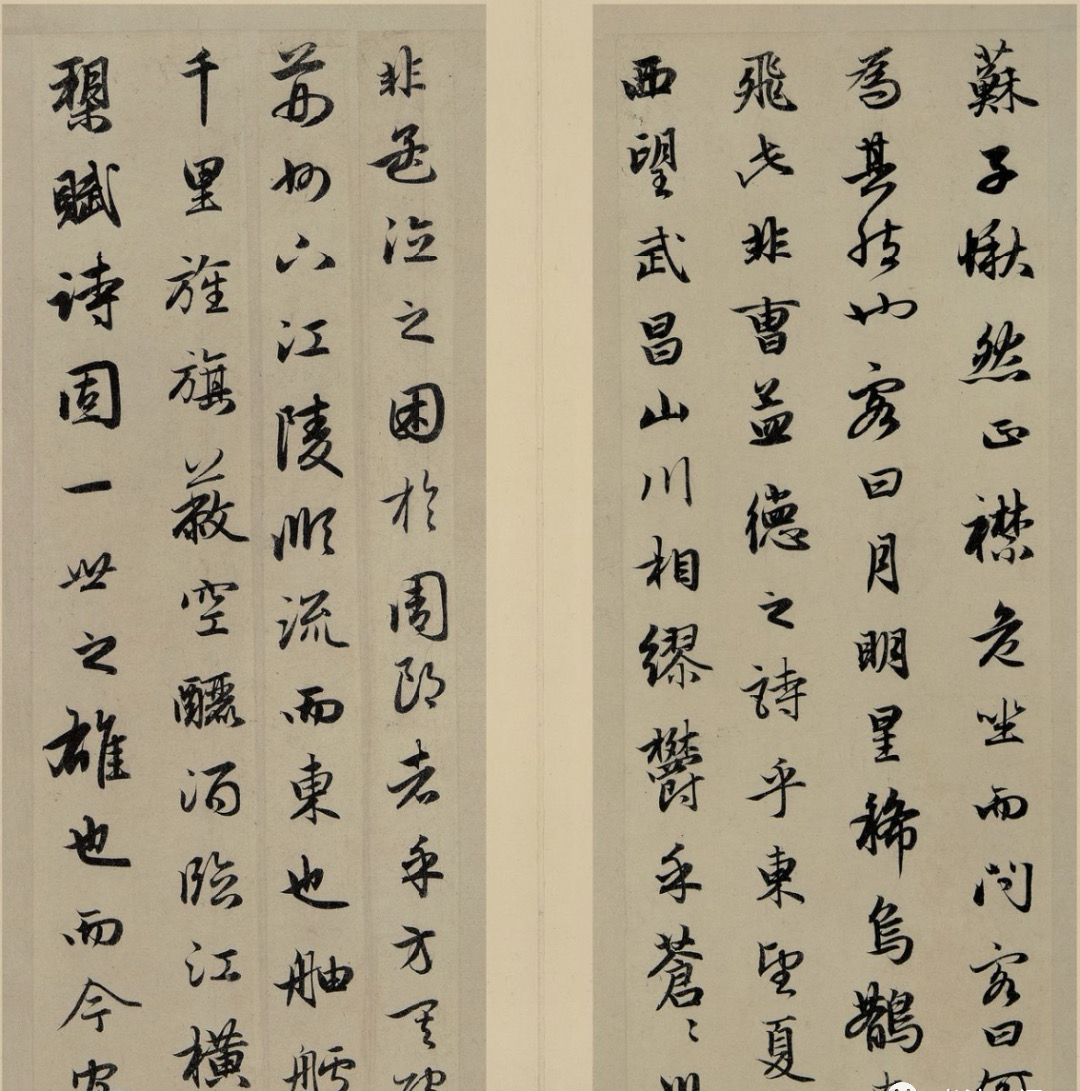 蘇子愀然正襟危坐而問客曰何
為其然也客曰月明星稀烏鵲
飛此非曹孟德之詩乎東望夏
西望武昌山川相繆鬱乎蒼〻
非孟德之困於周郎者乎方其破
荊州下江陵順流而東也舳艫
千里旌旗蔽空釃酒臨江橫
槊賦詩固一世之雄也而今安